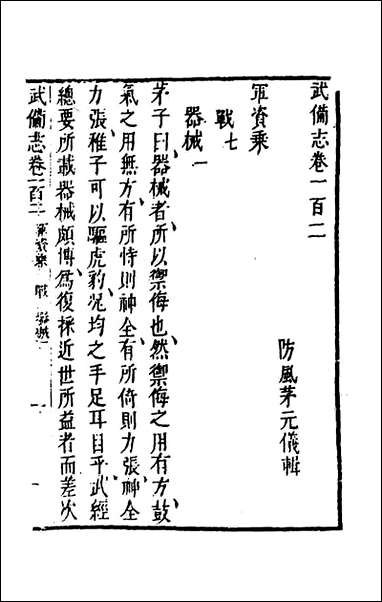 武備志卷一百二
防風茅元儀輯
軍資乘
戰七
器械一
茅子曰器械者所以禦侮也然禦侮之用有方鼓
氣之用無方有所恃則神全有所倚則力張神全
力張稚子可以驅虎豹況均之手足耳目乎武經
總要所載器械頗博爲復採近世所益者而差次
武備志卷一百二 軍資乘 戰 器械一 一